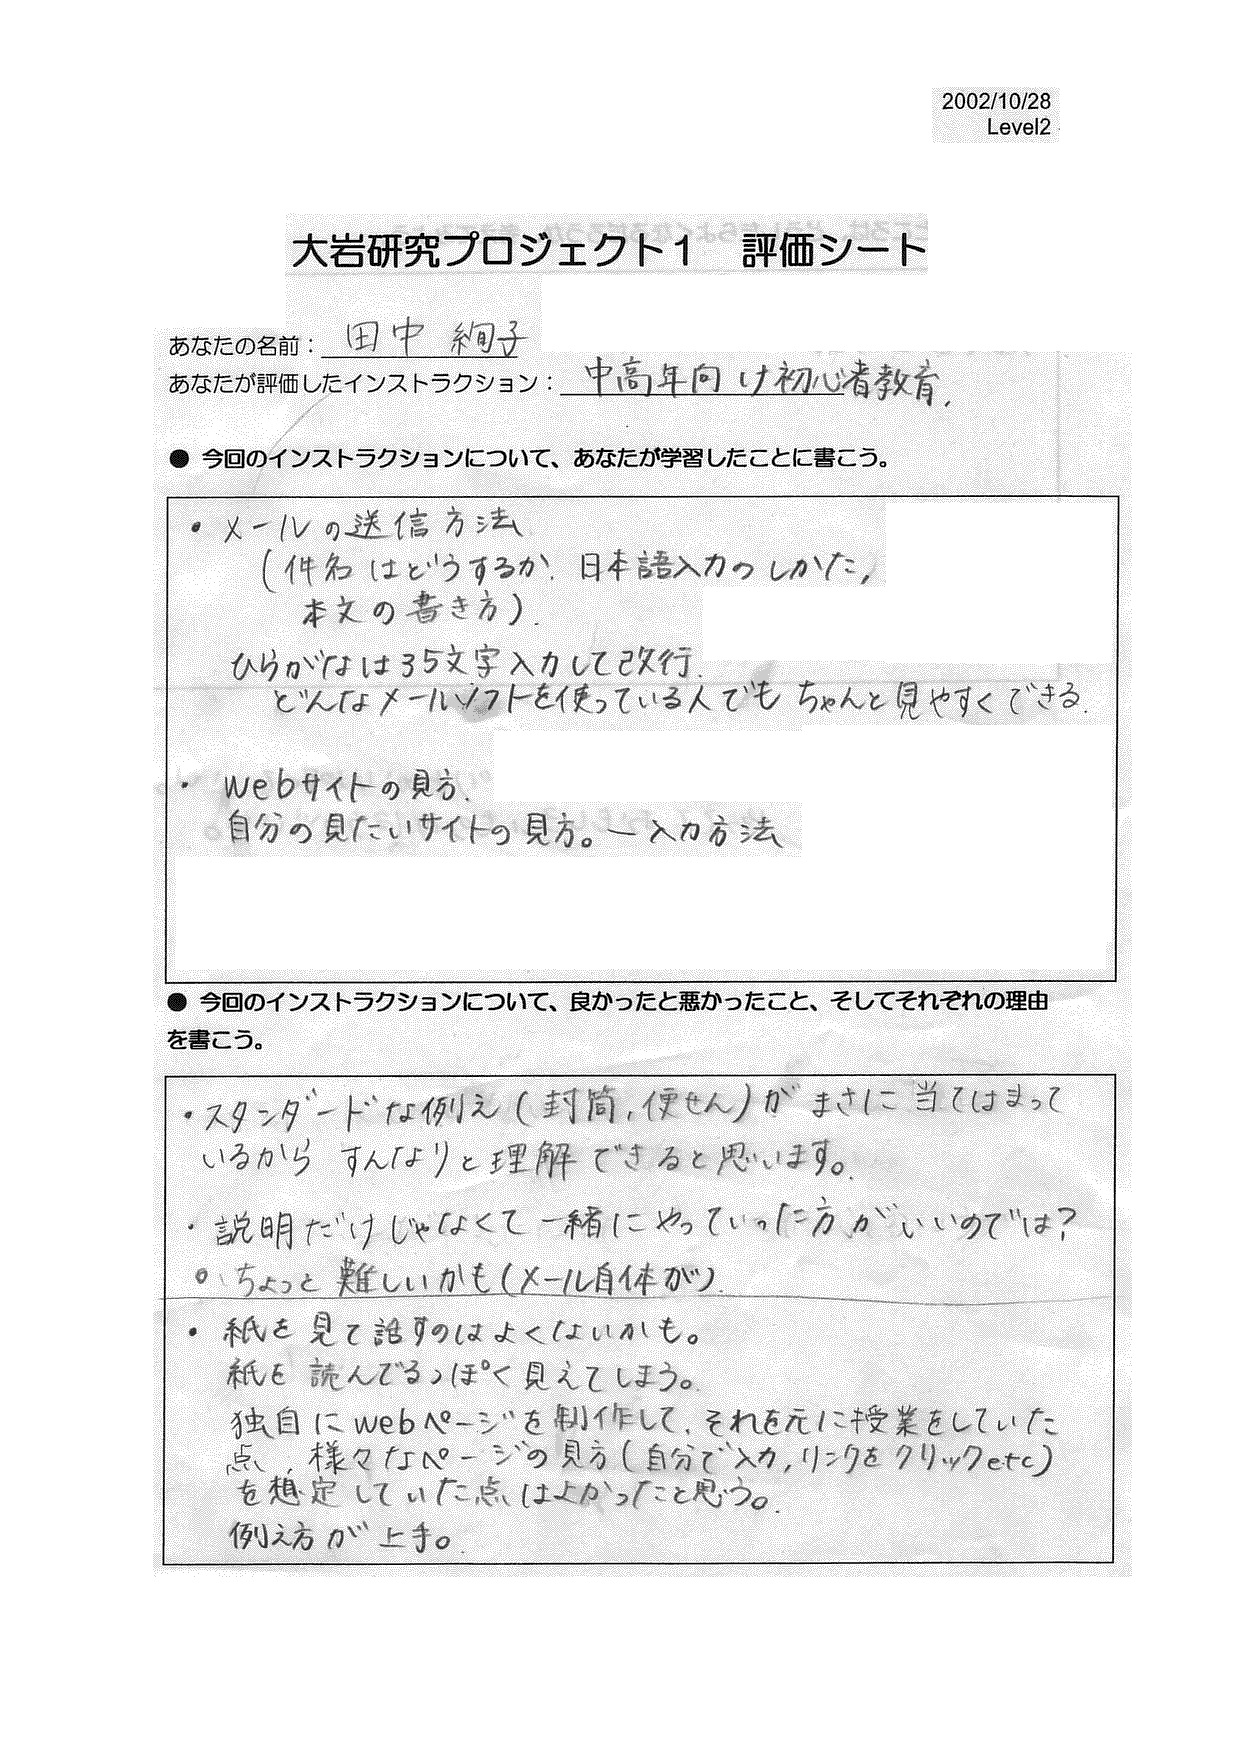 2002/10/28
Level2
大岩研究プロジェクト１　評価シート
あなたの名前：田中 絢子
あなたが評価したインストラクション：中高年向け初心者教育.
● 今回のインストラクションについて、あなたが学習したことに書こう。
・メールの送信方法
(件名はどうするか. 日本語入力のしかた,
本文の書き方).
ひらがなは35文字入力して改行.
どんなメールソフトを使っている人でもちゃんと見やすくできる.
・Webサイトの見方.
自分の見たいサイトの見方。ー入力方法
● 今回のインストラクションについて、良かったと悪かったこと、そしてそれぞれの理由
を書こう。
・スタンダードな例え(封筒,便せん)がまさに当てはまって
いるからすんなりと理解できると思います。
・説明だけじゃなくて一緒にやっていった方がいいのでは?
。ちょっと難しいかも(メール自体が).
・紙を見て話すのはよくないかも。
紙を読んでるっぽく見えてしまう。
独自にwebページを制作して、それを元に授業をしていた
点、様々なページの見方(自分で入力,リンクをクリックetc)
を想定していた点はよかったと思う。
例え方が上手。